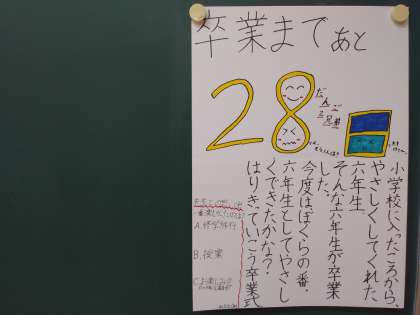 卒業まであと
28
だんご
3兄弟
小学校に入ったころから、
やさしくしてくれた
六年生。
そんな六年生が卒業
した。
今度は、ぼくらの番。
六年生としてやさし
くできたかな？
はりきっていこう卒業式
一番楽しかったのは？
A.修学旅行
B.授業